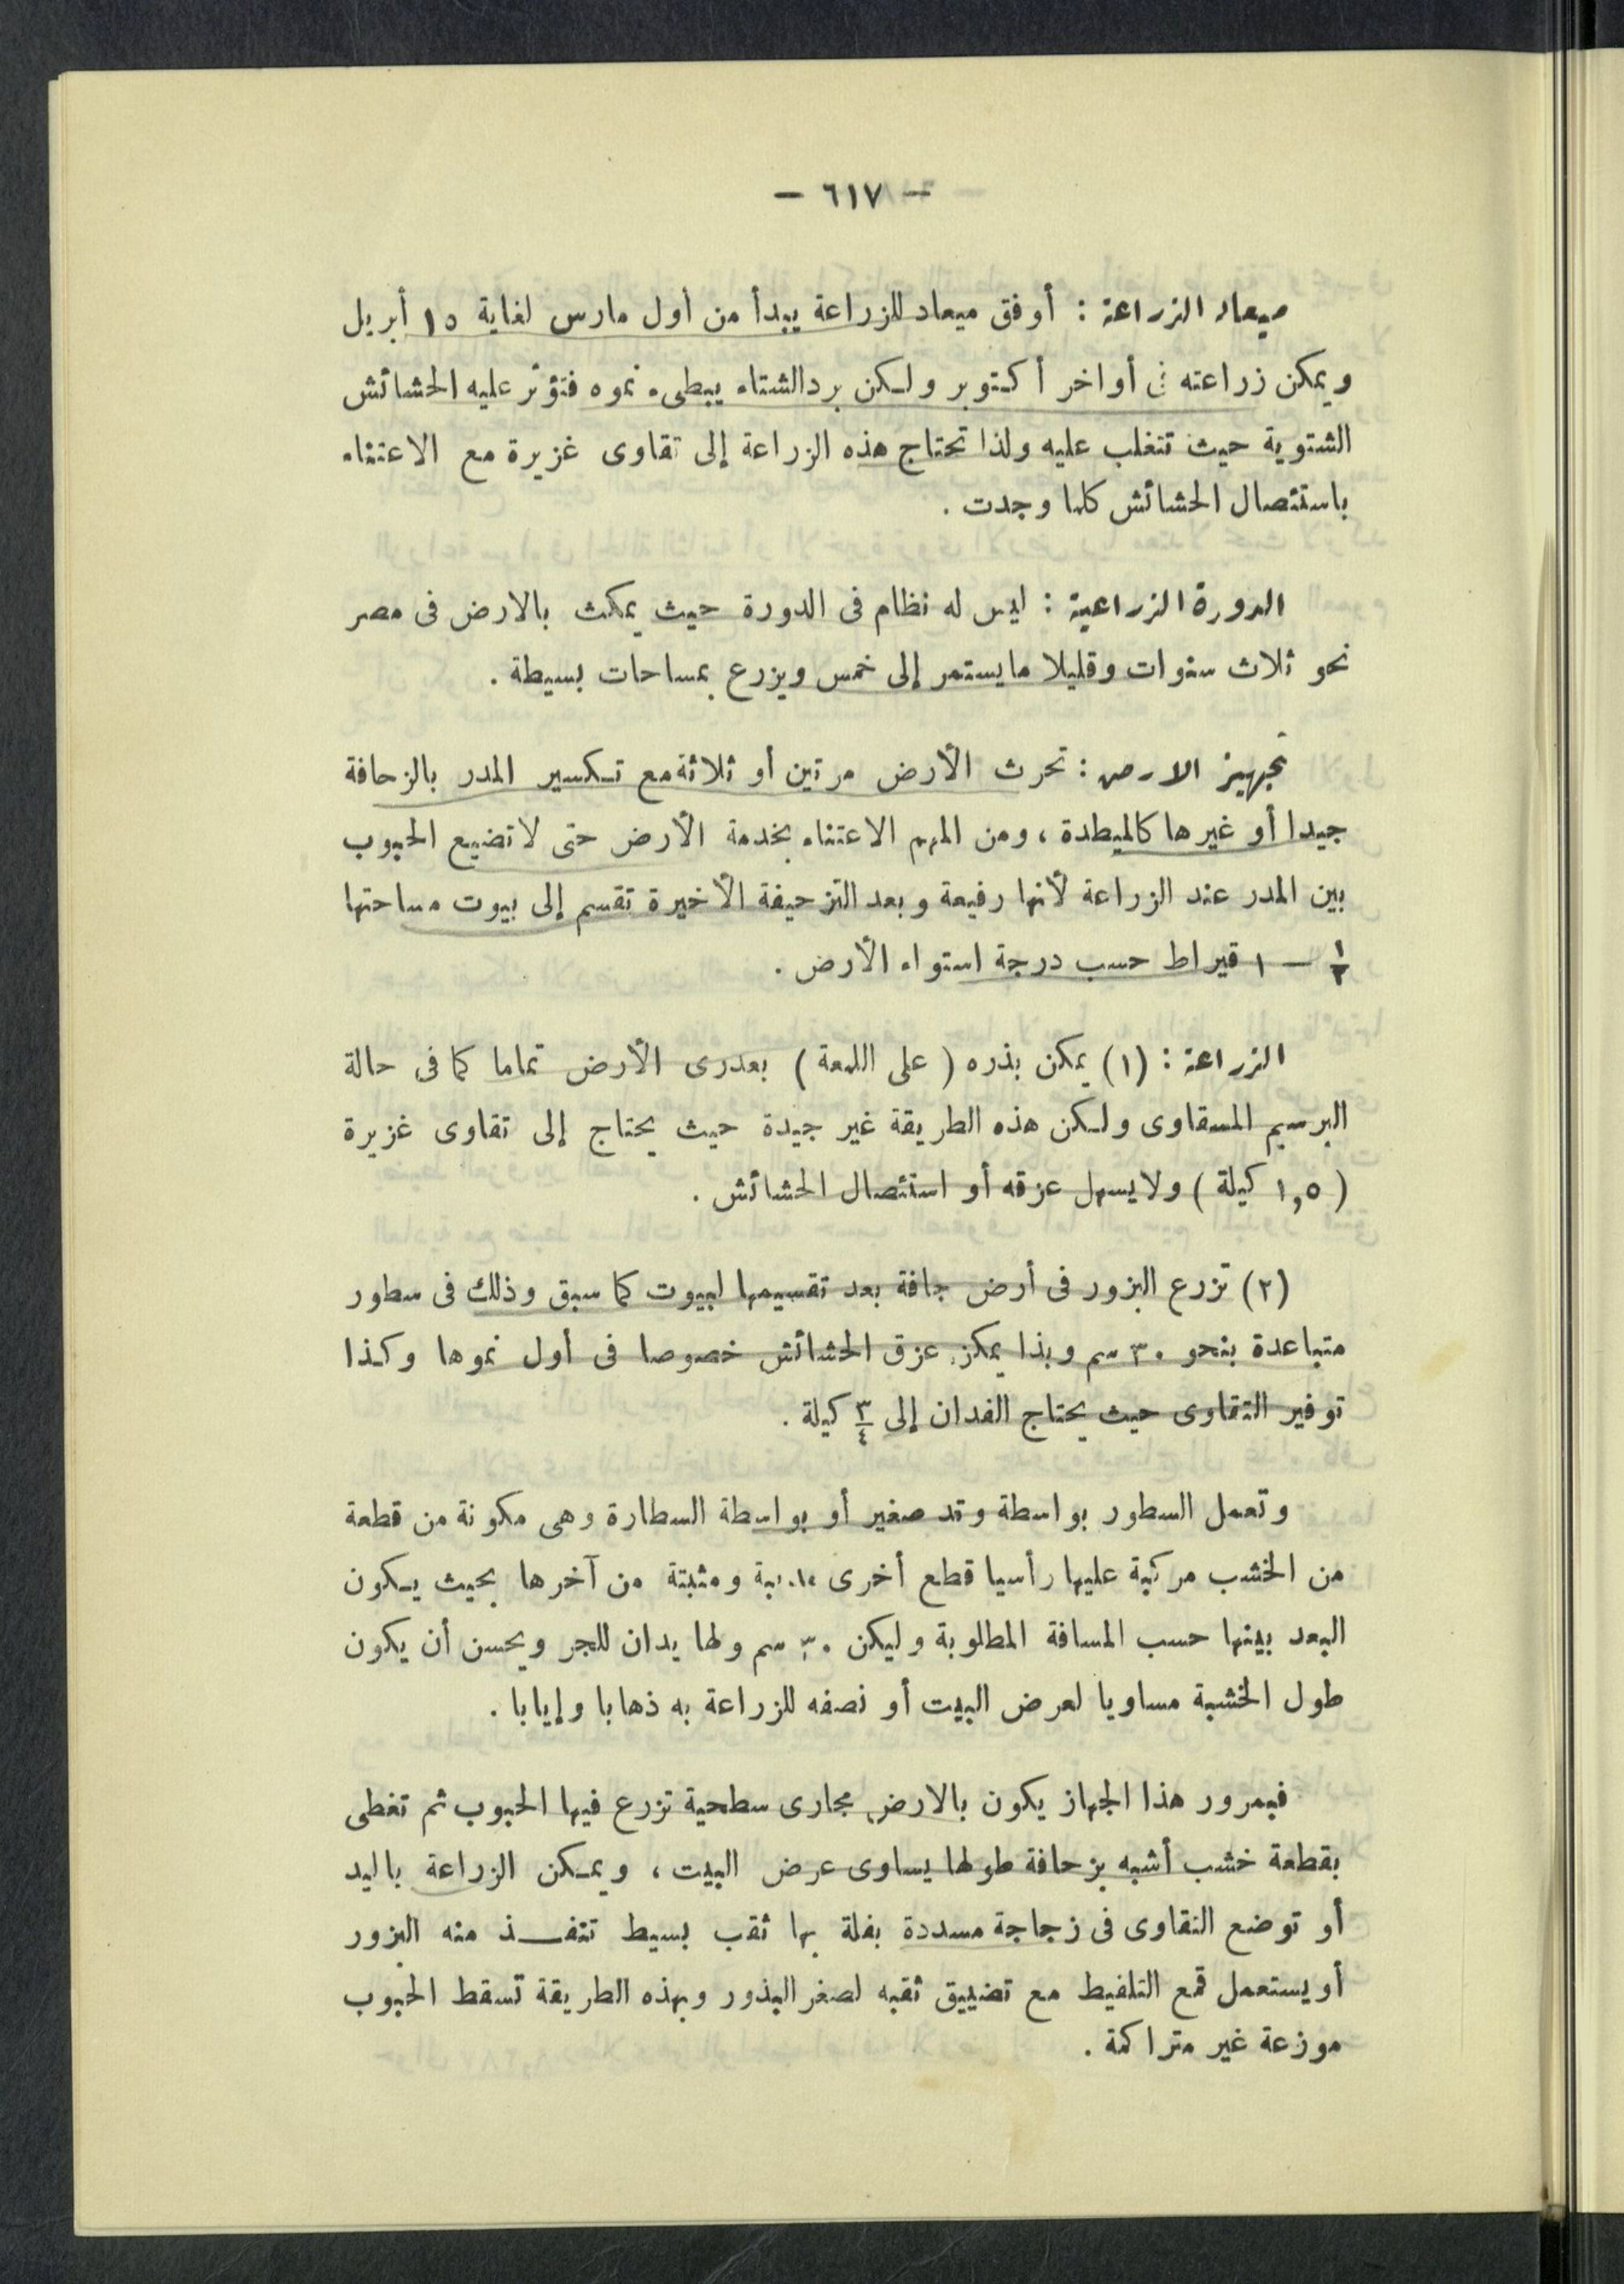 — ٦١٧ —
ميعاد الزراعة : أوفق ميعاد للزراعة يبدأ من أول مارس لغاية ١٥ أبريل
ويمكن زراعته فى أواخر أكتوبر ولكن برد الشتاء يبطىء نموه فتؤثر عليه الحشائش
الشتوية حيث تتغلب عليه ولذا تحتاج هذه الزراعة إلى تقاوى غزيرة مع الاعتناء
باستئصال الحشائش كلما وجدت .
الدورة الزراعية : ليس له نظام فى الدورة حيث يمكث بالارض فى مصر
نحو ثلاث سنوات وقليلا ما يستمر إلى خمس ويزرع بمساحات بسيطة .
تجهيز الارض : تحرث الأرض مرتين أو ثلاثة مع تكسير المدر بالزحافة
جيدا أو غيرها كالميطدة ، ومن المهم الاعتناء بخدمة الأرض حتى لا تضيع الحبوب
بين المدر عند الزراعة لأنها رفيعة وبعد التزحيفة الأخيرة تقسم إلى بيوت مساحتها
١/٢ — ١ قيراط حسب درجة استواء الأرض .
الزراعة : (١) يمكن بذره ( على اللمعة ) بعد رى الأرض تماما كما فى حالة
البرسيم المسقاوى ولكن هذه الطريقة غير جيدة حيث يحتاج إلى تقاوى غزيرة
( ١,٥ كيلة ) ولا يسهل عزقه أو استئصال الحشائش .
(٢) تزرع البزور فى أرض جافة بعد تقسيمها لبيوت كما سبق وذلك فى سطور
متباعدة بنحو ٣٠ سم وبذا يمكن عزق الحشائش خصوصا فى أول نموها وكذا
توفير التقاوى حيث يحتاج الفدان إلى ٣/٤ كيلة .
وتعمل السطور بواسطة وتد صغير أو بواسطة السطارة وهى مكونة من قطعة
من الخشب مركبة عليها رأسيا قطع أخرى ومثبتة من آخرها بحيث يكون
البعد بينها حسب المسافة المطلوبة وليكن ٣٠ سم ولها يدان للجر ويحسن أن يكون
طول الخشبة مساويا لعرض البيت أو نصفه للزراعة به ذهابا وإيابا .
فبمرور هذا الجهاز يكون بالارض مجارى سطحية تزرع فيها الحبوب ثم تغطى
بقطعة خشب أشبه بزحافة طولها يساوى عرض البيت ، ويمكن الزراعة باليد
أو توضع التقاوى فى زجاجة مسددة بفلة بها ثقب بسيط تنفذ منه البزور
أو يستعمل قمع التلقيط مع تضييق ثقبه لصغر البذور وبهذه الطريقة تسقط الحبوب
موزعة غير متراكمة .